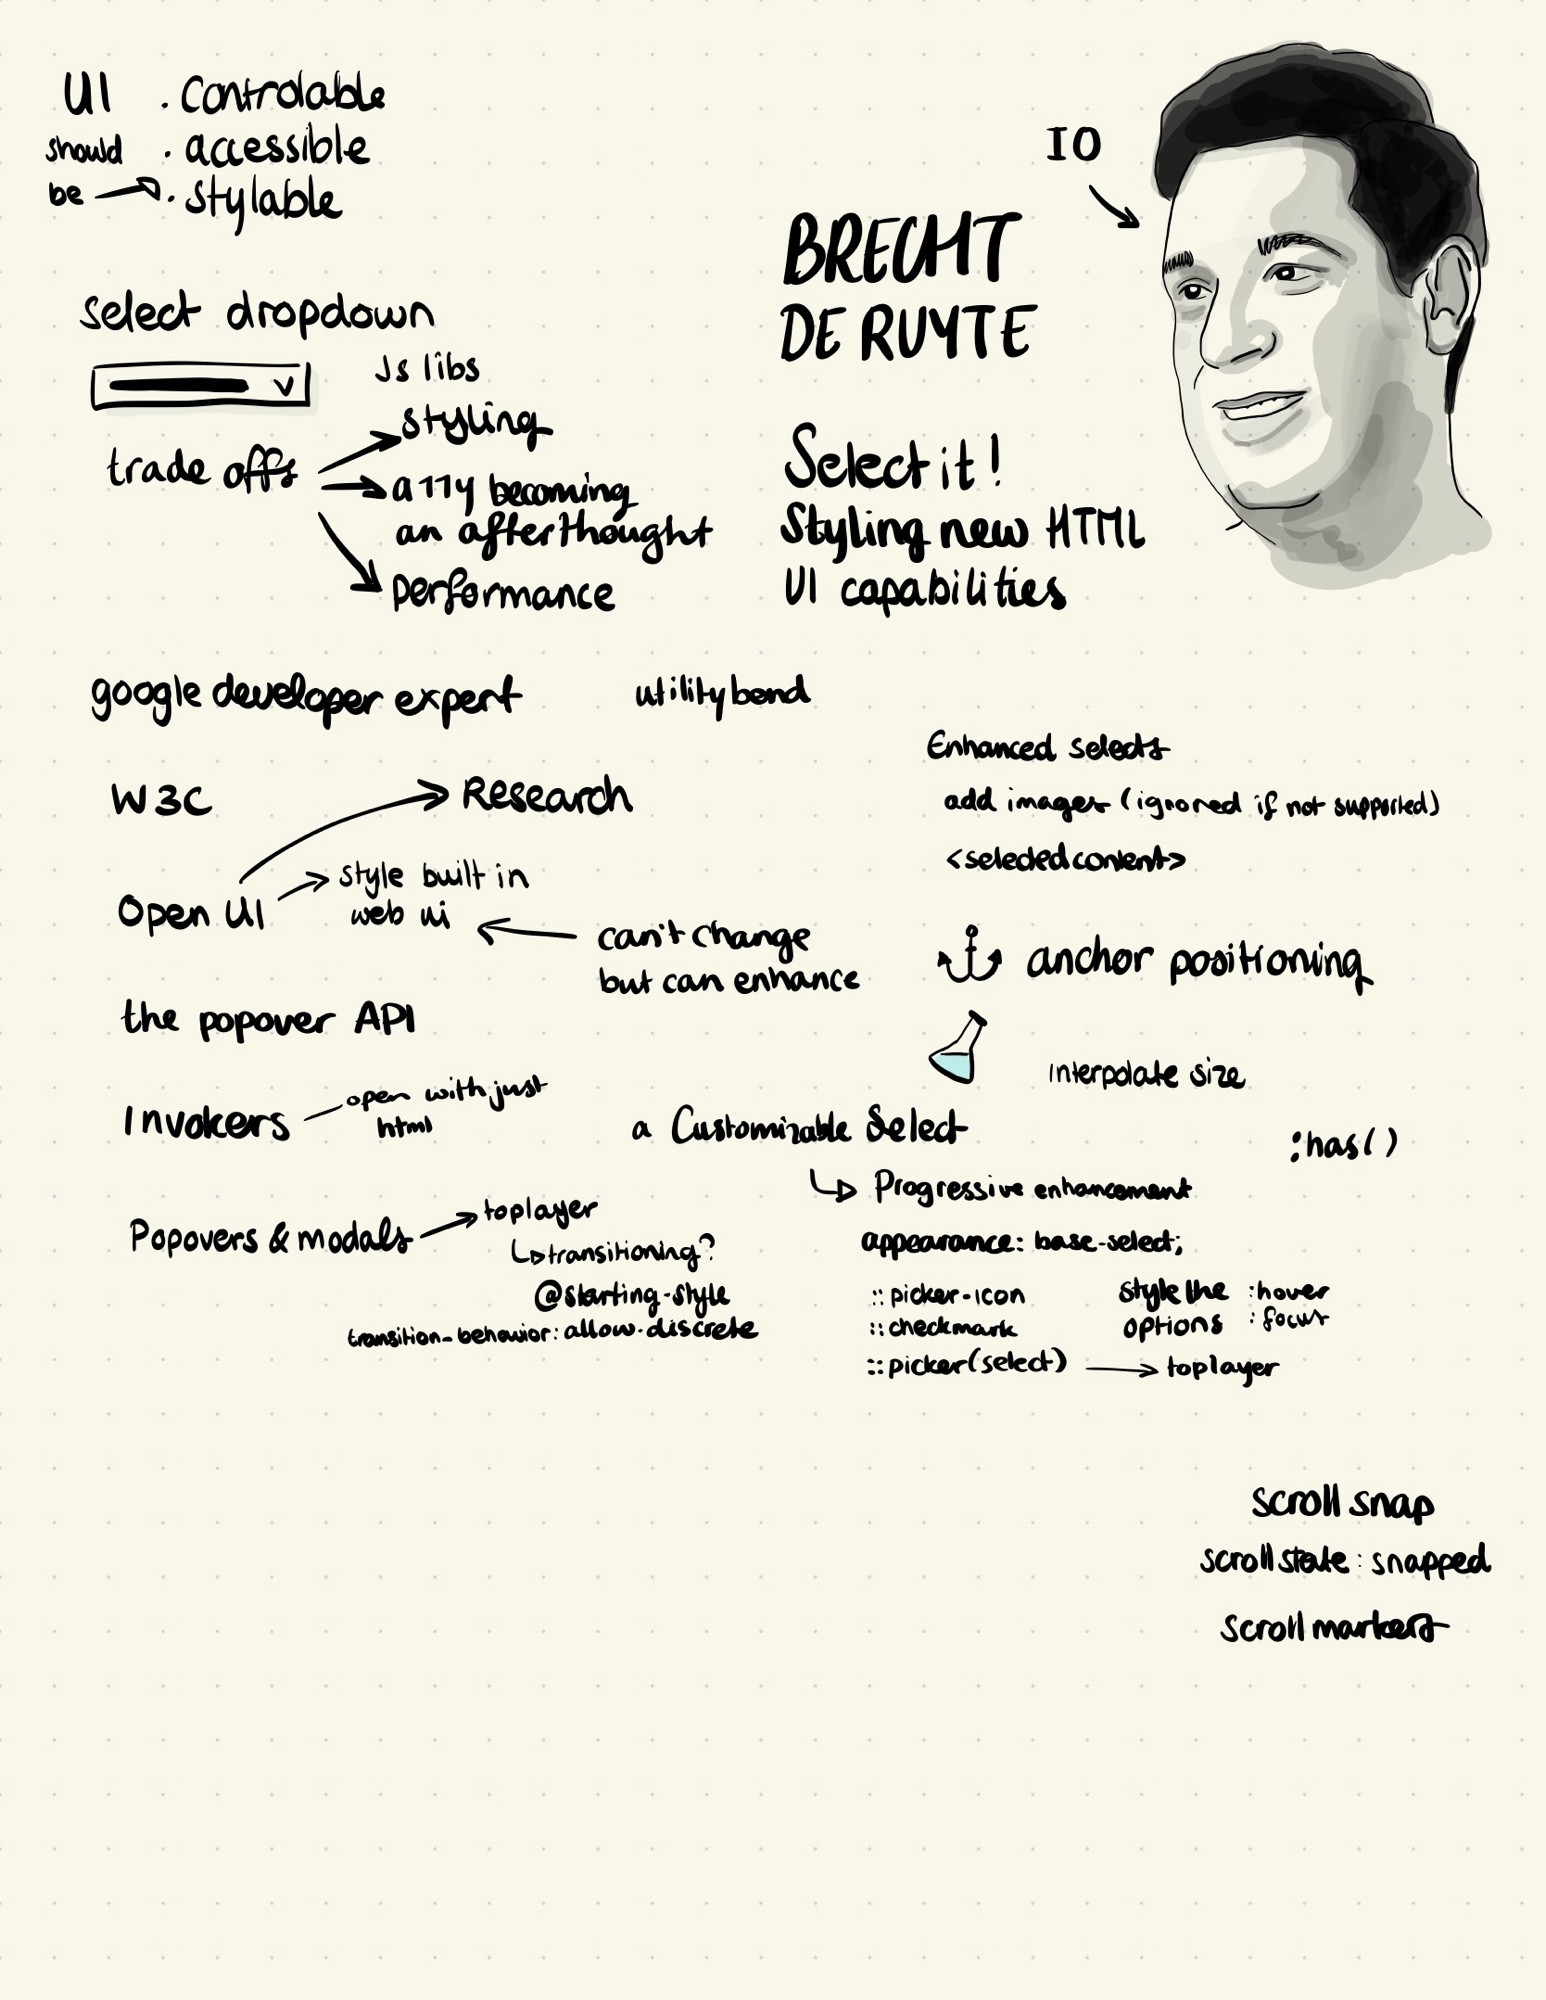 UI . Controlable
should . accessible
be . stylable
IO
BRECHT
DE RUYTE
Select it!
Styling new HTML
UI capabilities
select dropdown
Js libs
trade offs
styling
a11y becoming
an afterthought
performance
google developer expert
utilitybend
W3C
Research
Open UI
style built in
web ui
can't change
but can enhance
the popover API
Invokers
open with just
html
Popovers & modals
toplayer
transitioning?
@starting-style
transition-behavior: allow-discrete
Enhanced selects
add images (ignored if not supported)
<selectedcontent>
anchor positioning
interpolate size
:has()
a Customizable Select
Progressive enhancement
appearance: base-select;
::picker-icon
::checkmark
::picker(select)
toplayer
style the :hover
options :focus
scroll snap
scrollstate: snapped
scroll markers